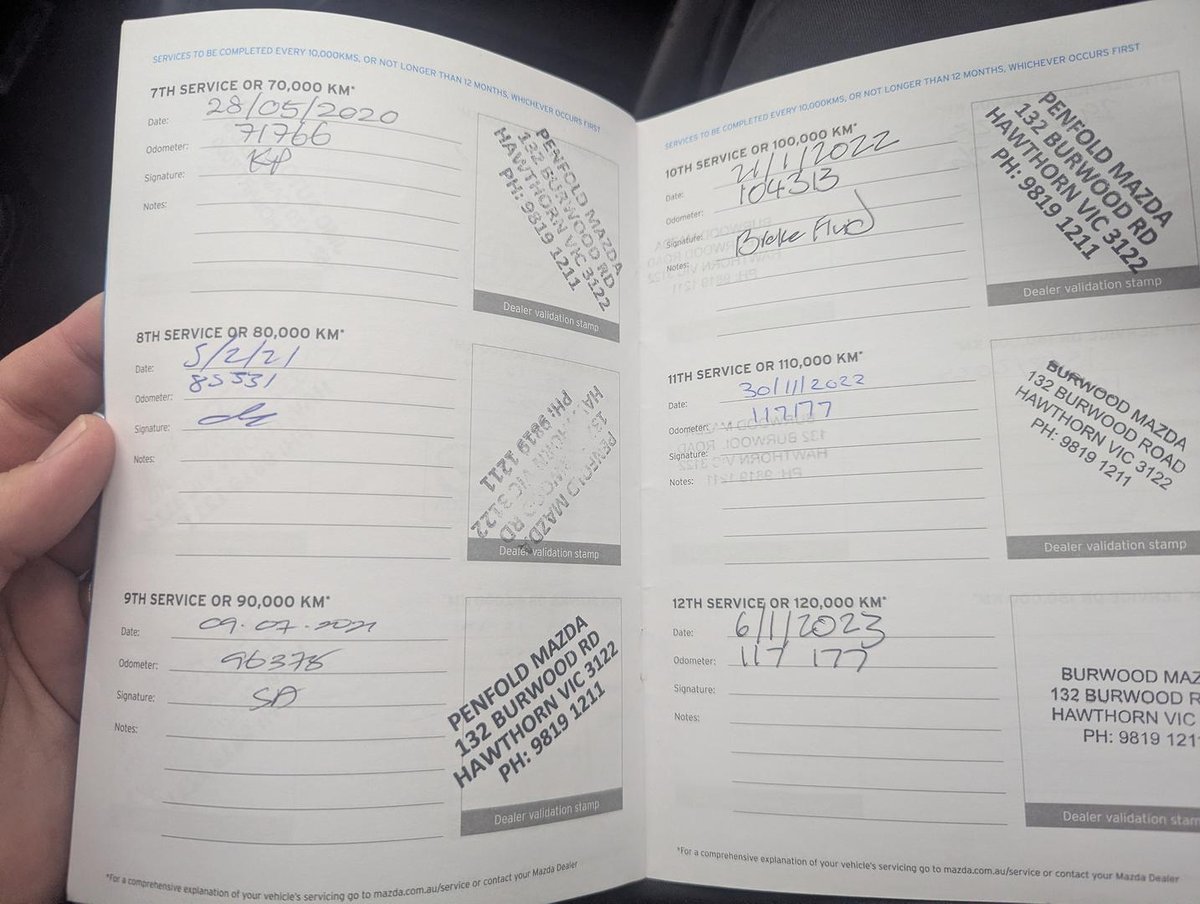 SERVICES TO BE COMPLETED EVERY 10,000KMS, OR NOT LONGER THAN 12 MONTHS, WHICHEVER OCCURS FIRST
7TH SERVICE OR 70,000 KM*
Date: 28/05/2020
Odometer: 71766
Signature: KP
Notes:
PENFOLD MAZDA
132 BURWOOD RD
HAWTHORN VIC 3122
PH: 9819 1211
Dealer validation stamp
8TH SERVICE OR 80,000 KM*
Date: 5/2/21
Odometer: 85531
Signature:
Notes:
PENFOLD MAZDA
132 BURWOOD RD
HAWTHORN VIC 3122
PH: 9819 1211
Dealer validation stamp
9TH SERVICE OR 90,000 KM*
Date: 09.07.2021
Odometer: 96375
Signature: SA
Notes:
PENFOLD MAZDA
132 BURWOOD RD
HAWTHORN VIC 3122
PH: 9819 1211
Dealer validation stamp
*For a comprehensive explanation of your vehicle's servicing go to mazda.com.au/service or contact your Mazda Dealer
SERVICES TO BE COMPLETED EVERY 10,000KMS, OR NOT LONGER THAN 12 MONTHS, WHICHEVER OCCURS FIRST
10TH SERVICE OR 100,000 KM*
Date: 21/1/2022
Odometer: 104313
Signature:
Notes: Brake Fluid
PENFOLD MAZDA
132 BURWOOD RD
HAWTHORN VIC 3122
PH: 9819 1211
Dealer validation stamp
11TH SERVICE OR 110,000 KM*
Date: 30/11/2022
Odometer: 117177
Signature:
Notes:
BURWOOD MAZDA
132 BURWOOD ROAD
HAWTHORN VIC 3122
PH: 9819 1211
Dealer validation stamp
12TH SERVICE OR 120,000 KM*
Date: 6/1/2023
Odometer: 117 177
Signature:
Notes:
BURWOOD MAZ
132 BURWOOD R
HAWTHORN VIC
PH: 9819 121
Dealer validation stam
*For a comprehensive explanation of your vehicle's servicing go to mazda.com.au/service or contact your Mazda Dealer